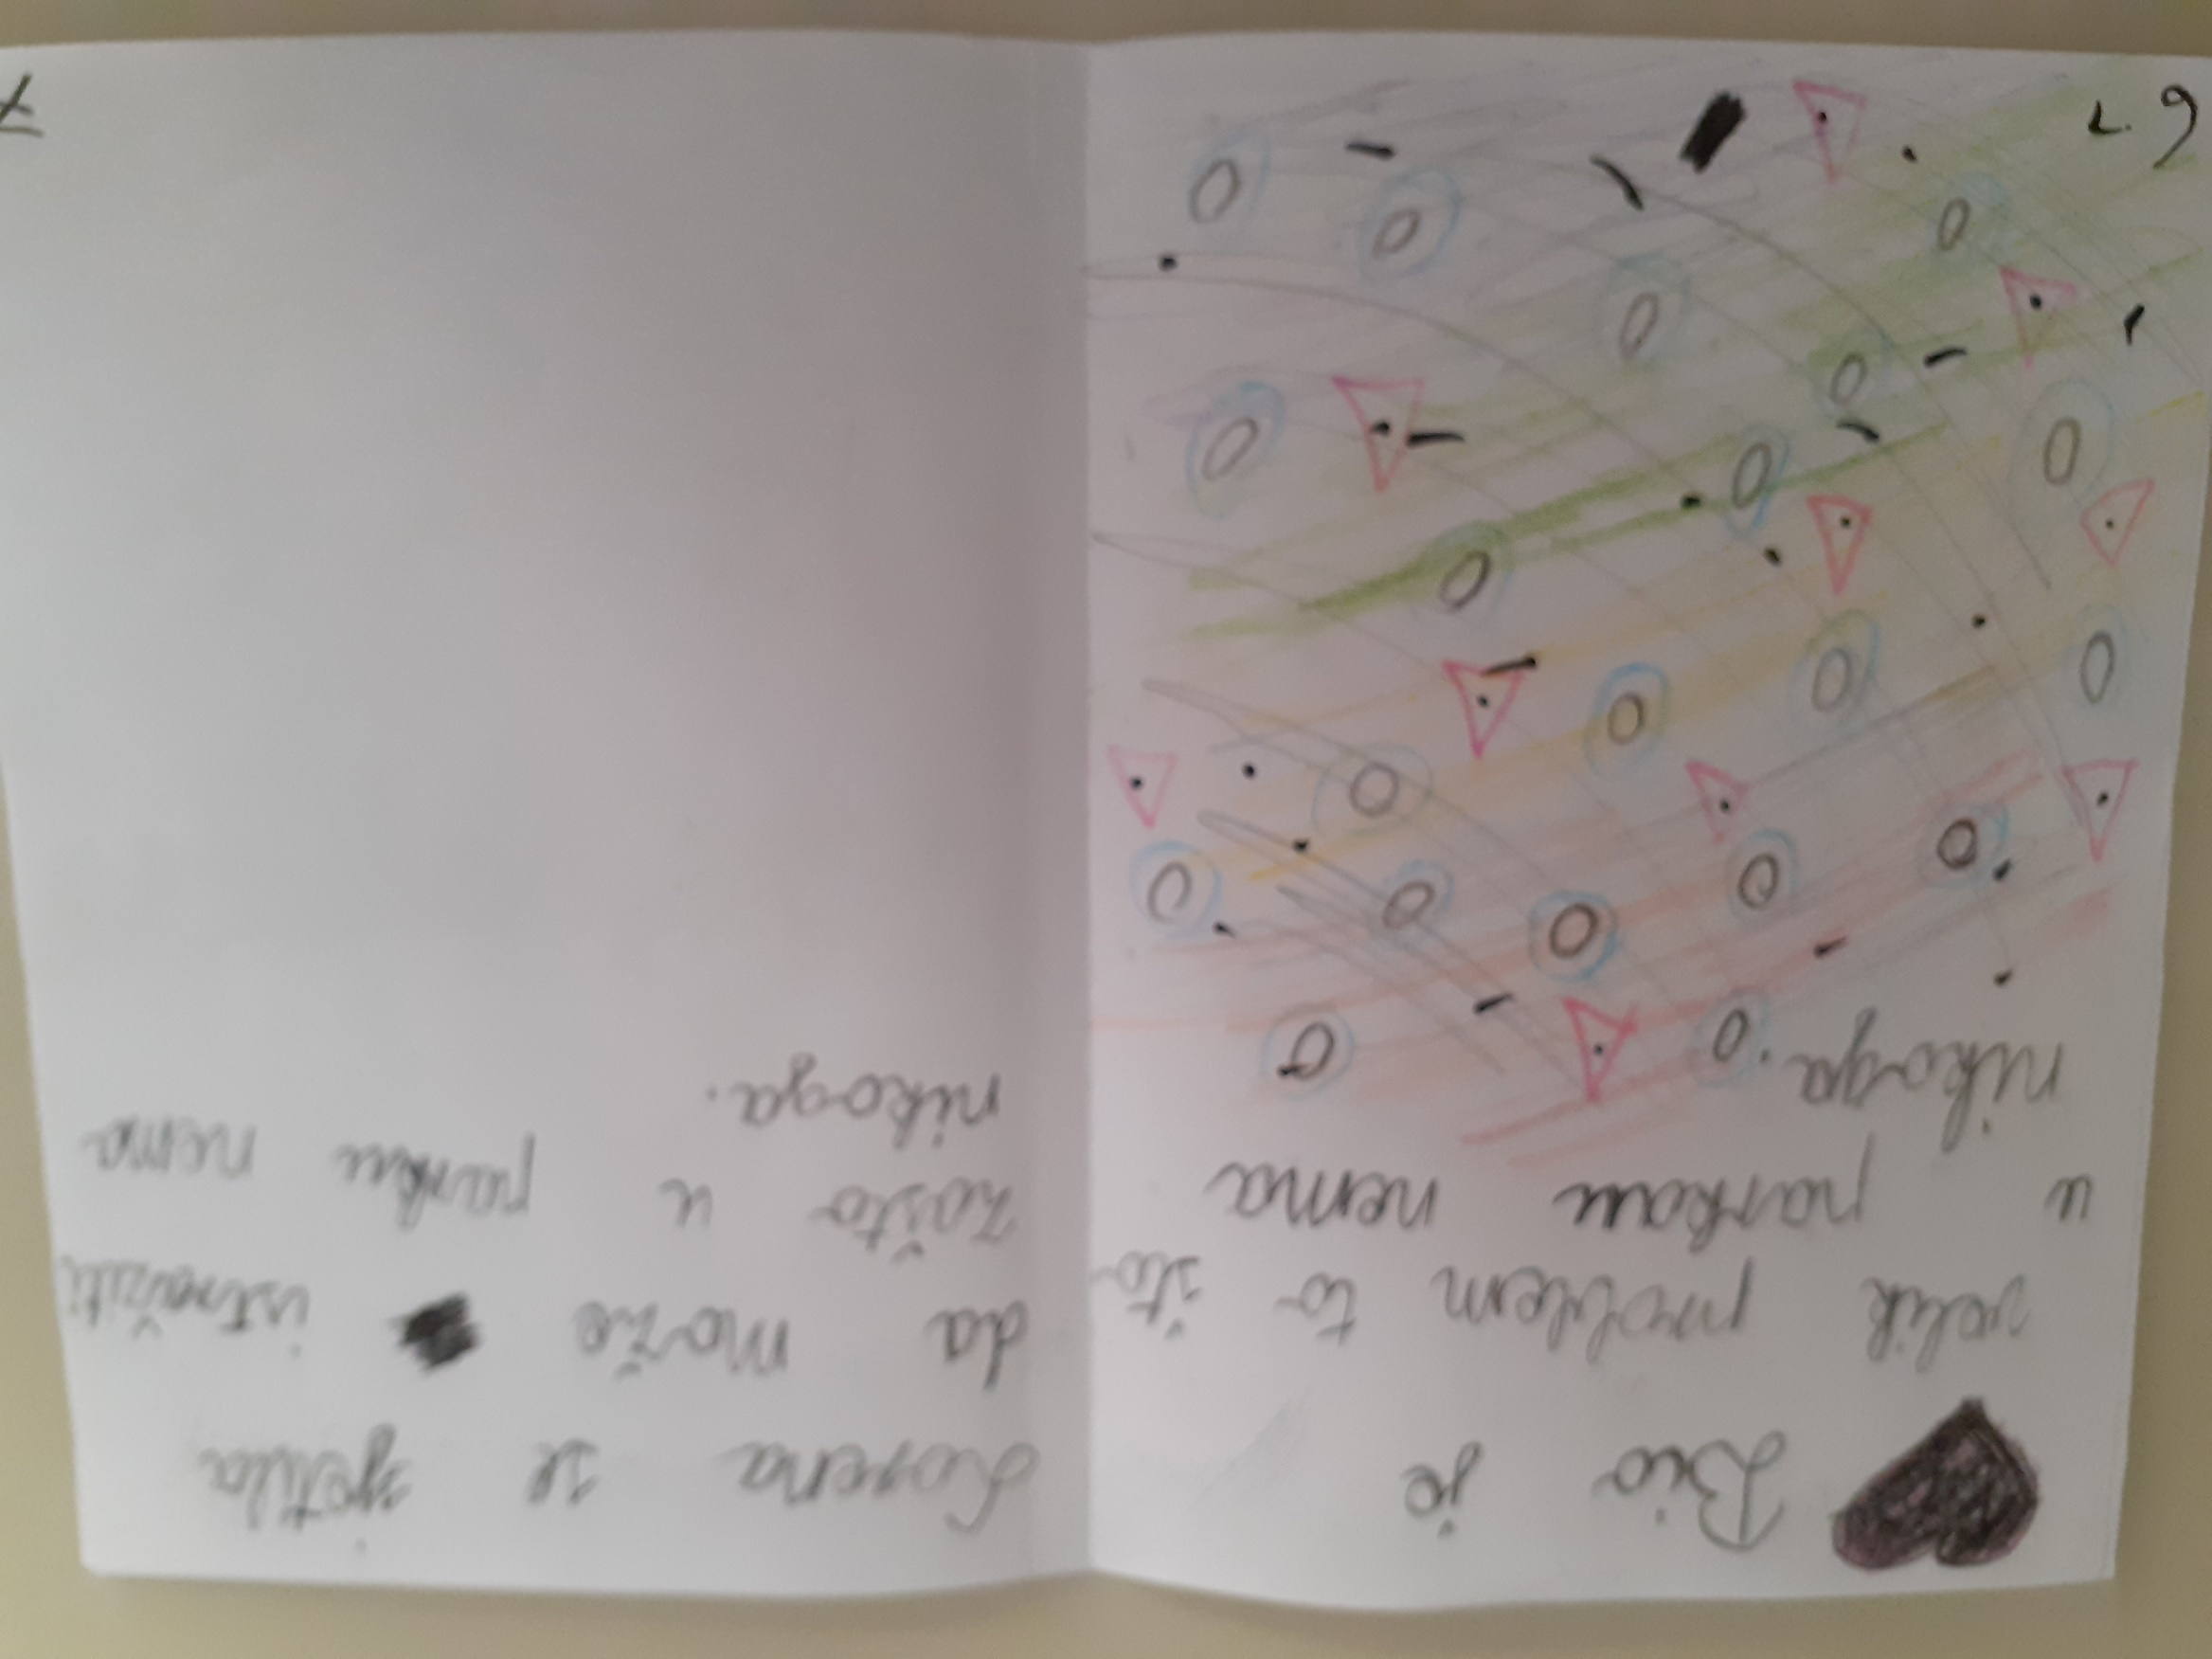 Bio je
velik problem to što
u parkau nema
nikoga.
6.
Lorena se sjetila
da može istražiti
zašto u parku nema
nikoga.
7